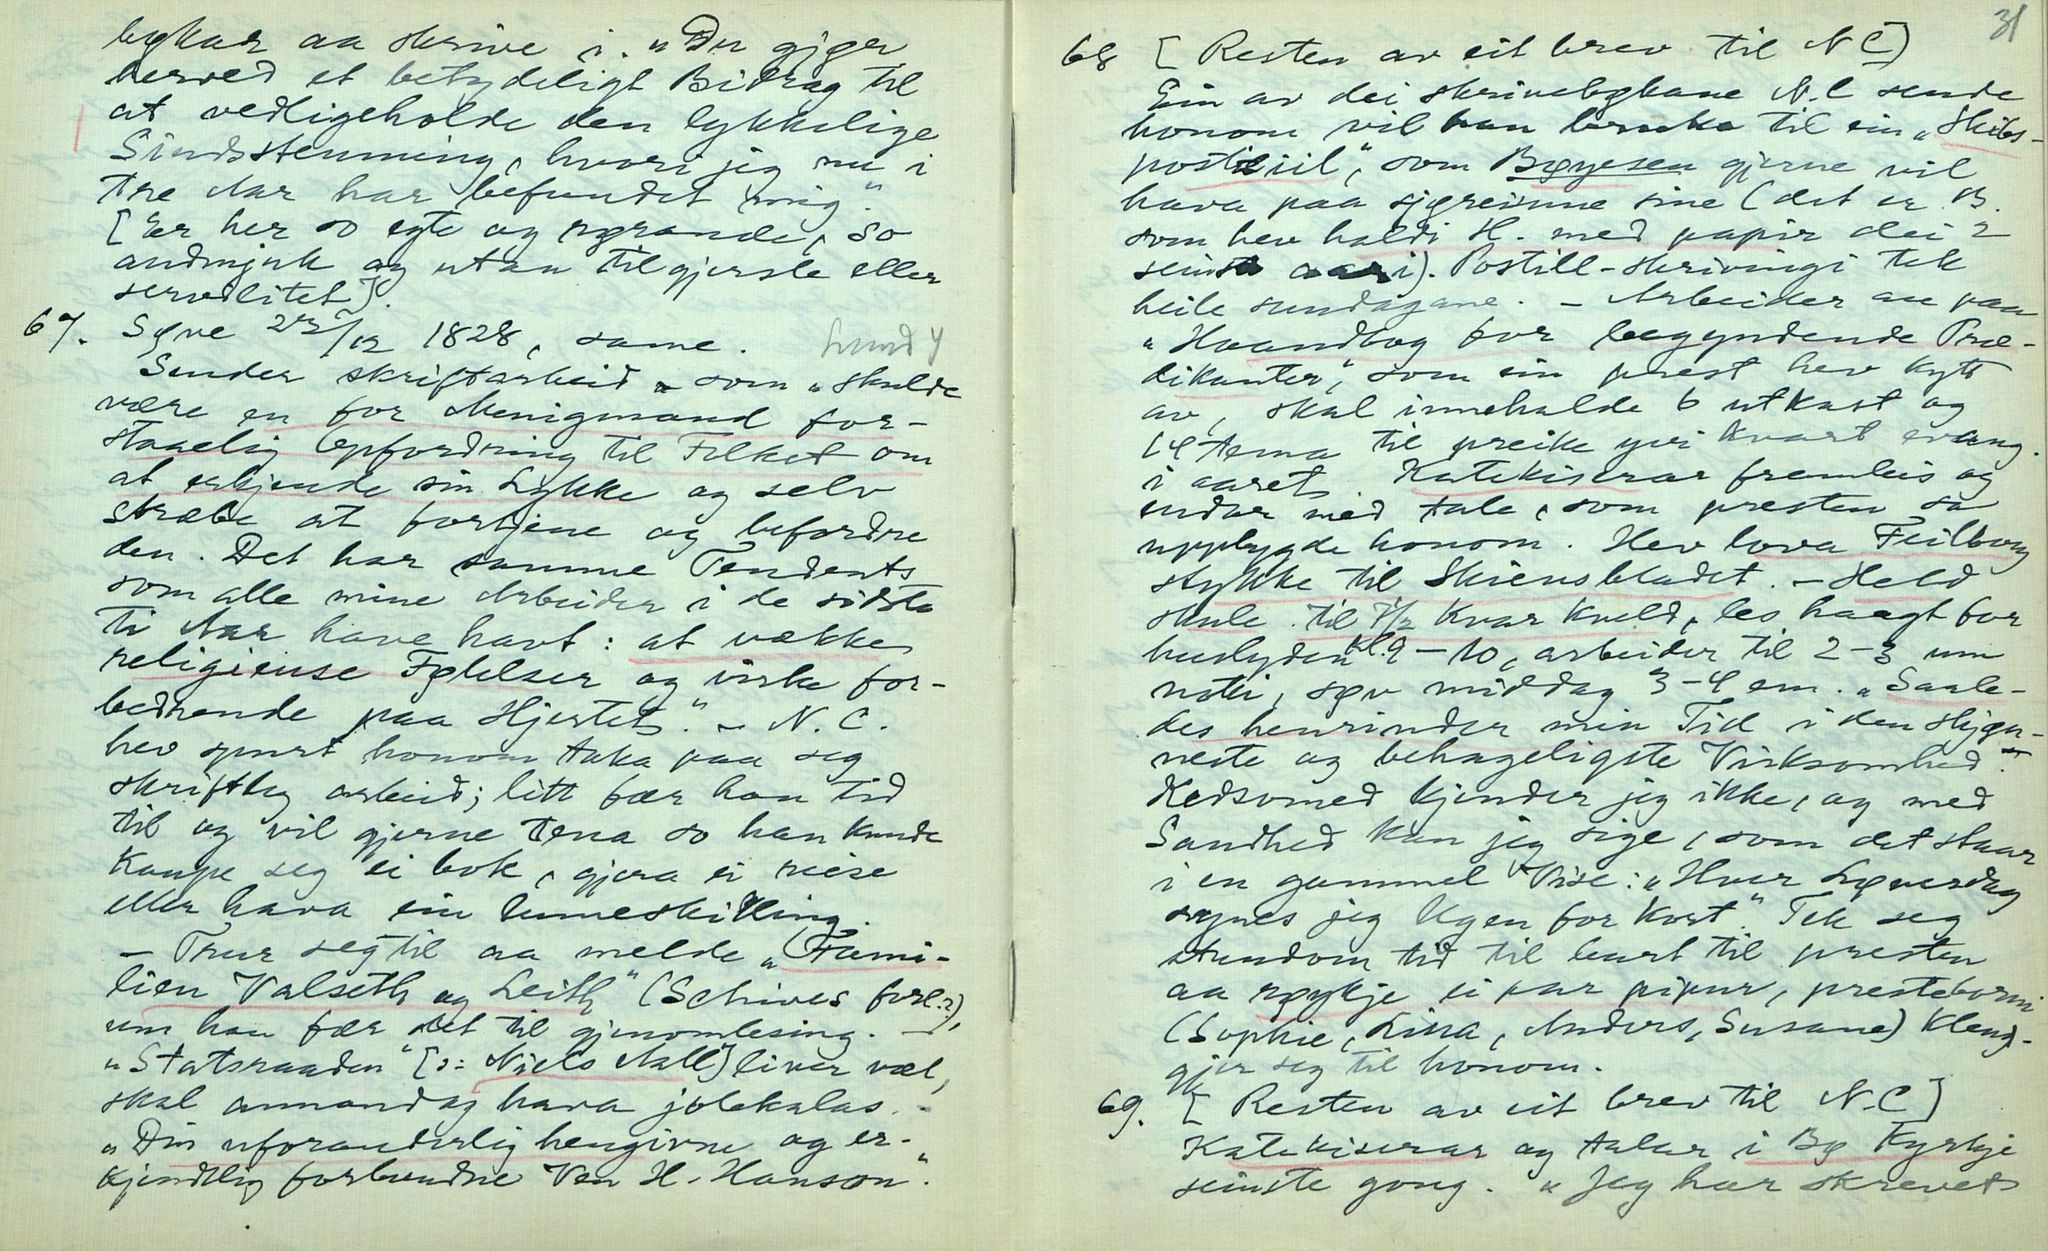 bøkar aa skrive i. "Du gjør
herved et betydeligt Bidrag til
at vedligeholde den lykkelige
Sindsstemning, hvori jeg nu i
tre Aar har befundet mig."
[Er her so egte og rørande, so
audmjuk og utan tilgjersle eller
servilitet].
67. Søve 22/12 1828, same. Lund 4
Sender skriftarbeid - som "skulde
være en for Menigmand for-
staaelig Opfordring til Folket om
at erkjende sin Lykke og selv
stræbe at fortjene og befordre
den. Det har samme Tendents
som alle mine Arbeider i de sidste
ti Aar have havt: at vække
religieuse Følelser og virke for-
bedrende paa Hjertet." - N. C.
hev spurt honom taka paa seg
skriftleg arbeid; litt fær han tid
til og vil gjerne tena so han kunde
kaupe seg ei bok, gjera ei reise
eller hava ein lumeskilling.
- Trur seg til aa melde "Fami-
lien Valseth og Leith" (Schives forl.?),
um han fær det til gjenomlesing. -
"Statsraaden" [ɔ: Niels Aall] liver væl,
skal annandag hava jolekalas. -
"Din uforanderlig hengivne og er-
kjendtlig forbundne Ven H. Hanson".
31
68 [Resten av eit brev til N C]
Ein av dei skrivebøkane N. C sende
honom vil han bruka til ein "Skibs-
postiil", som Bøyesen gjerne vil
hava paa sjøreisune sine (det er B.
som hev haldi H. med papir dei 2
seinste aari). Postill-skrivingi tek
heile sundagane. - Arbeider au paa
"Haandbog for begyndende Præ-
dikanter", som ein prest hev kytt
av, skal innehalde 6 utkast og
14 tema til preike yvi kvart evang.
i aaret. Katekiserar framleis og
endar med tale, som presten sa
uppbygde honom. Hev lova Feilberg
stykke til Skiensbladet. - Held
skule til 7 1/2 kvar kveld, les høgt for
huslyden kl. 9-10, arbeider til 2-3 um
noti, søv middag 3-4 em. "Saale-
des henrinder min Tid i den skjøn-
neste og behageligste Virksomhed".
Kedsomed kjender jeg ikke, og med
Sandhed kan jeg sige, som det staar
i en gammel Vise: "Hver Løverdag
synes jeg Ugen for kort." Tek seg
stundom tid til burt til presten
aa røykje ei par pipur, presteborni
(Sophie, Lina, Anders, Susane) kleng-
gjer seg til honom.
69. [Resten av eit brev til N. C]
Katekiserar og talar i Bø kyrkje
seinste gong. "Jeg har skrevet